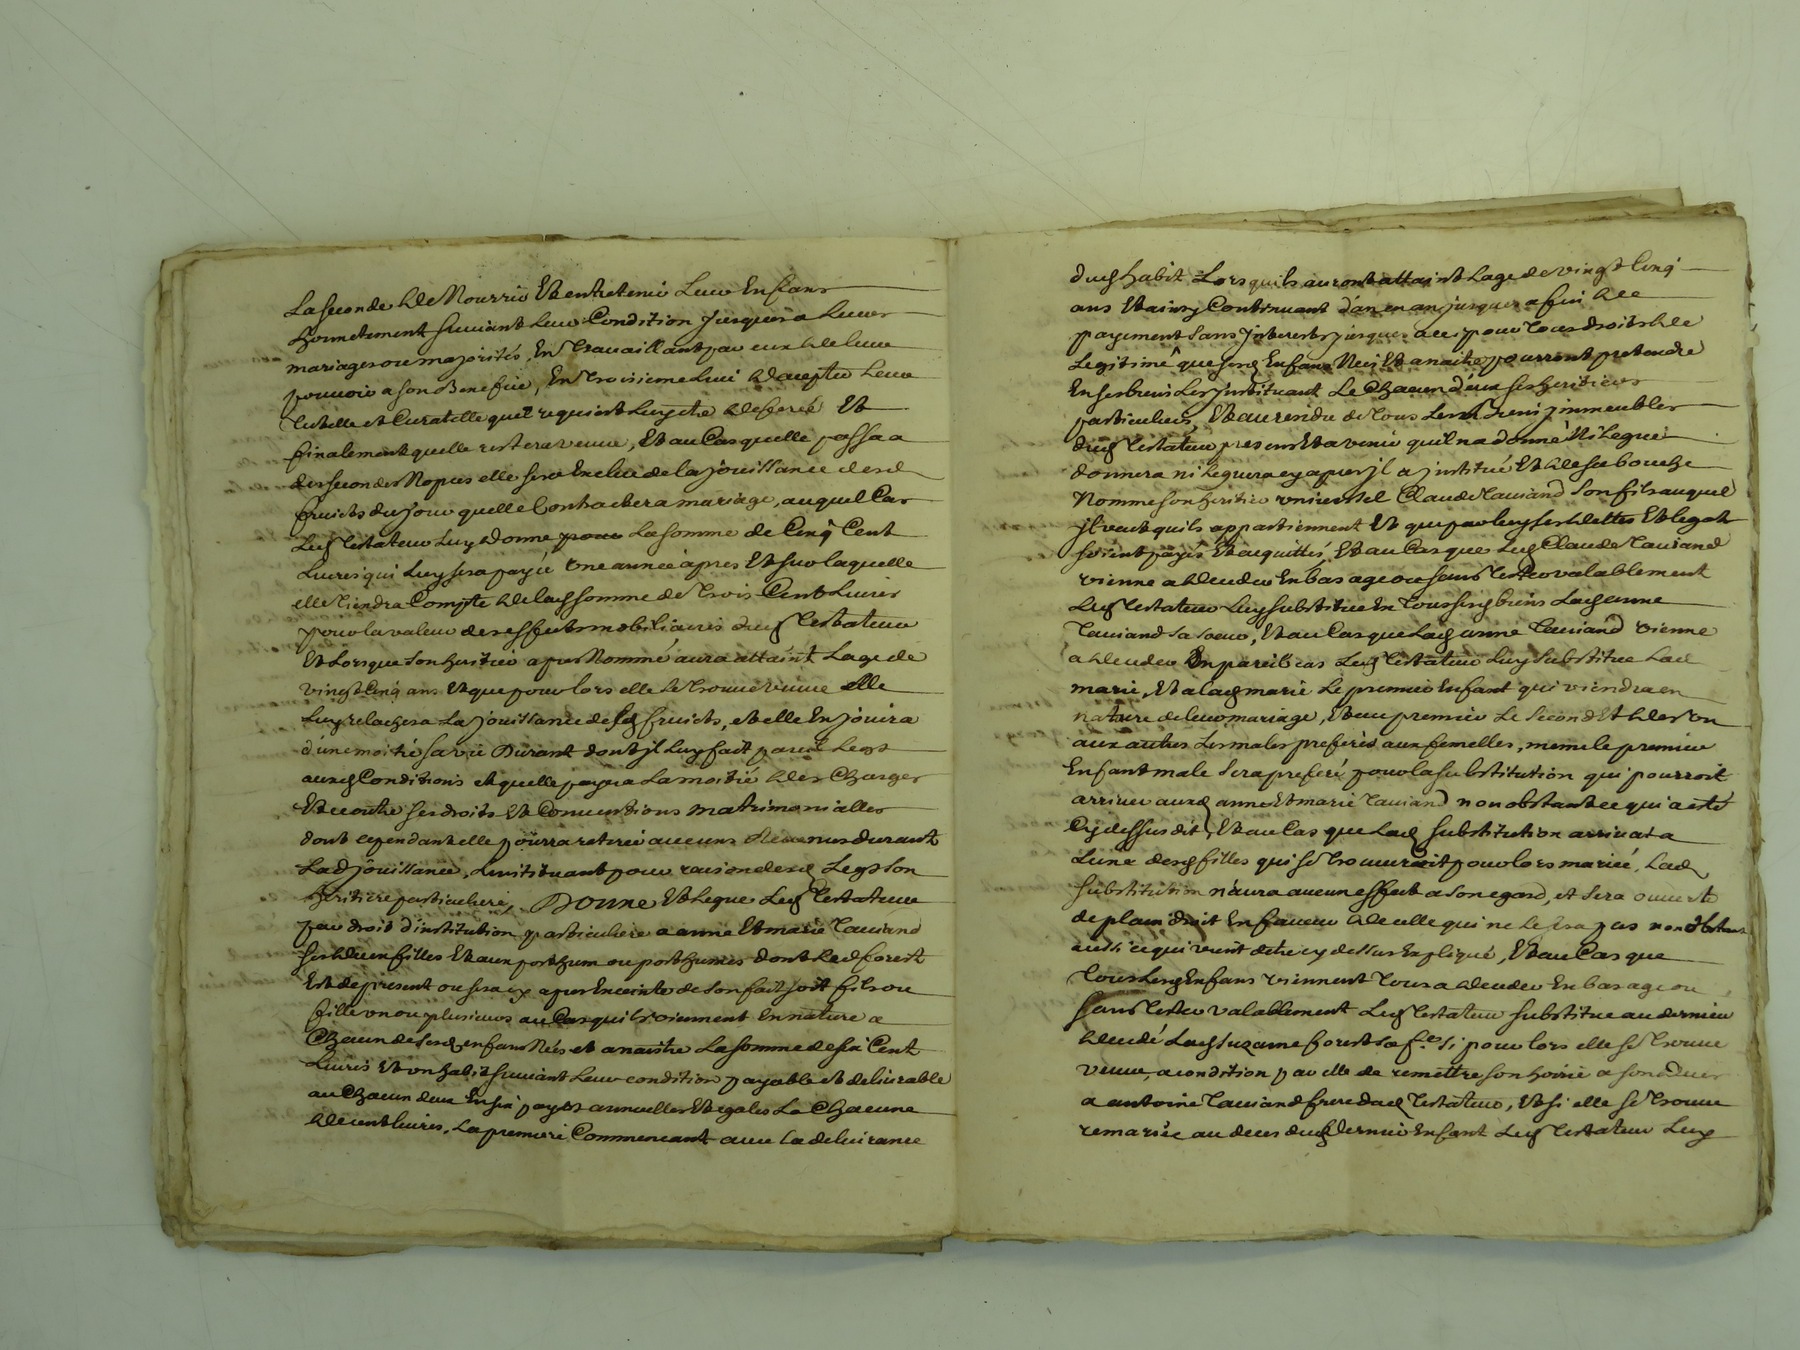 La seconde de Nourrir Et entretenir Leur Enfans
honnetement suivant Leur Condition jusques a Leurs
mariages ou majorités, En Travaillant par eux de leur
pouvoir a son Benefice, En Troisieme Lieu d'accepter Leur
Tutelle et Curatelle quil requiert Luy etre deferée Et
finalement quelle restera veuve, Et au Cas quelle passa a
des secondes Nopces elle sera Exclue de la jouissance desd
fruicts du jour quelle Contractera mariage, auquel Cas
Led Testateur Luy donne pour La somme de Cinq Cent
Livres qui Luy sera payée Une année apres Et sur laquelle
elle Tiendra Compte de lad somme de Trois Cent Livres
pour la valeur des effects mobiliaires dud Testateur
Et Lorsque son heritier apres Nommé aura attaint Lage de
vingt Cinq ans Et que pour lors elle se Trouve veuve elle
Luy relachera La jouissance desd fruicts, et elle En jouira
d'une moitié sa vie Durant dont jl Luy fait pareil Legs
auxd Conditions et quelle payera La moitié des Charges
Et outre ses droits Et Conventions matrimonialles
dont cependant elle pourra retirer aucuns Revenus durant
Lad jouissance, Linstituant pour raison desd Legs son
heritiere particuliere, Donne Et Legue Led Testateur
par droit d'institution particuliere a anne Et marie Tauiand
ses deux filles Et aux posthum ou posthumes dont Lad forest
Est de present ou sera cy apres Enceinte de son fait soit fils ou
fille un ou plusieurs au Cas quils viennent En nature a
Chacun de sesd enfans Nés et a naistre La somme de six Cent
Livres Et un habit suivant Leur condition payable et delivrable
au Chacun deux En six payes annuelles Et egales La Chacune
de cent livres, La premiere Commencant avec La delivrance
dud habit Lorsquils auront attaint Lage de vingt Cinq
ans Et ainsy Continuant d'an en an jusques a fin de
payement sans jnterests jusques alors pour Tous droits de
Legitime que sesd Enfans Nés Et a naitre pourront pretendre
En ses biens Les jnstituant Le Chacun d'eux ses heritiers
particuliers, Et au residu de Tous Les biens jmmeubles
dud Testateur presens Et avenir quil na donné Ni Legué
donnera ni Leguera cy apres jl a jnstitué Et de sa bouche
Nomme son heritier universel Claude Tauiand son fils auquel
jl veut quils appartiennent Et que par luy ses dettes Et legats
soient payés Et acquittés, Et au Cas que Led Claude Tauiand
vienne a deceder En bas age ou sans Tester valablement
Led Testateur Luy substitue En Tous sesd biens Lad anne
Tauiand sa soeur, Et au Cas que Lad anne Tauiand vienne
a deceder En pareil cas Led Testateur Luy substitue Lad
marie, Et a lad marie Le premier Enfant qui viendra en
nature de leur mariage, Et au premier Le second Et de L'un
aux autres Les males preferés aux femelles, meme le premier
Enfant male sera preferé pour la substitution qui pourroit
arriver auxd anne Et marie Tauiand nonobstant ce qui a eté
Cy dessus dit, Et au Cas que Lad substitution arrivat a
L'une desd filles qui se Trouveroit pour lors mariée, Lad
substitution n'aura aucun effect a son egard, et sera ouverte
de plain droit En faveur de celle qui ne le sera pas nonobstant
aussi ce qui vient detre cy dessus Expliqué, Et au Cas que
Tous Lesd Enfans viennent Tous a deceder En bas age ou
sans Tester valablement Led Testateur substitue au dernier
decedé Lad suzanne forest sa fe. si pour lors elle se Trouve
veuve, a condition par elle de remettre son hoirie a son deces
a antoine Tauiand frere dud Testateur, Et si elle se Trouve
remariée au deces dud dernier Enfant Led Testateur Luy